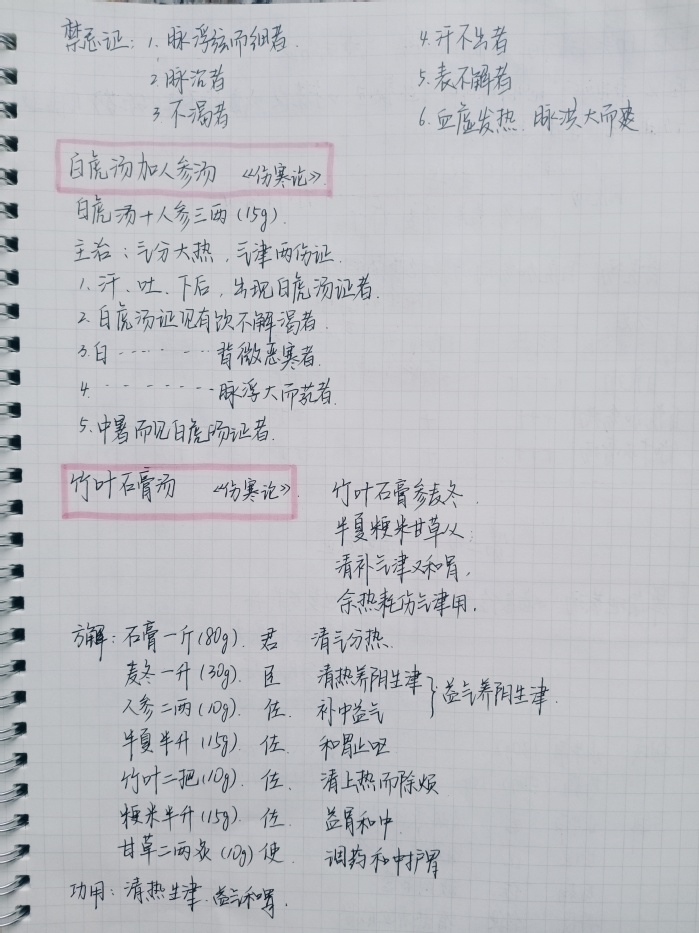 禁忌证：1. 脉浮弦而细者. 4. 汗不出者
2. 脉沉者 5. 表不解者
3 不渴者 6. 血虚发热. 脉洪大而
白虎汤加人参汤 《伤寒论》.
白虎汤+人参三两(15g).
主治：气分大热，气津两伤证.
1. 汗、吐、下后，出现白虎汤证者.
2. 白虎汤证见有饮不解渴者.
3. 白 ········ 背微恶寒者.
4. ········ 脉浮大而芤者.
5. 中暑而见白虎汤证者.
竹叶石膏汤 《伤寒论》. 竹叶石膏参麦冬.
半夏粳米甘草从；
清补气津又和胃，
余热耗伤气津用.
方解：石膏一斤(80g). 君 清气分热.
麦冬一升(30g). 臣 清热养阴生津
人参二两(10g). 佐. 补中益气 } 益气养阴生津.
半夏半升(15g). 佐. 和胃止呕
竹叶二把(10g). 佐. 清上热而除烦
粳米半升(15g). 佐. 益胃和中.
甘草二两炙(10g) 使. 调药和中护胃
功用：清热生津. 益气和胃.